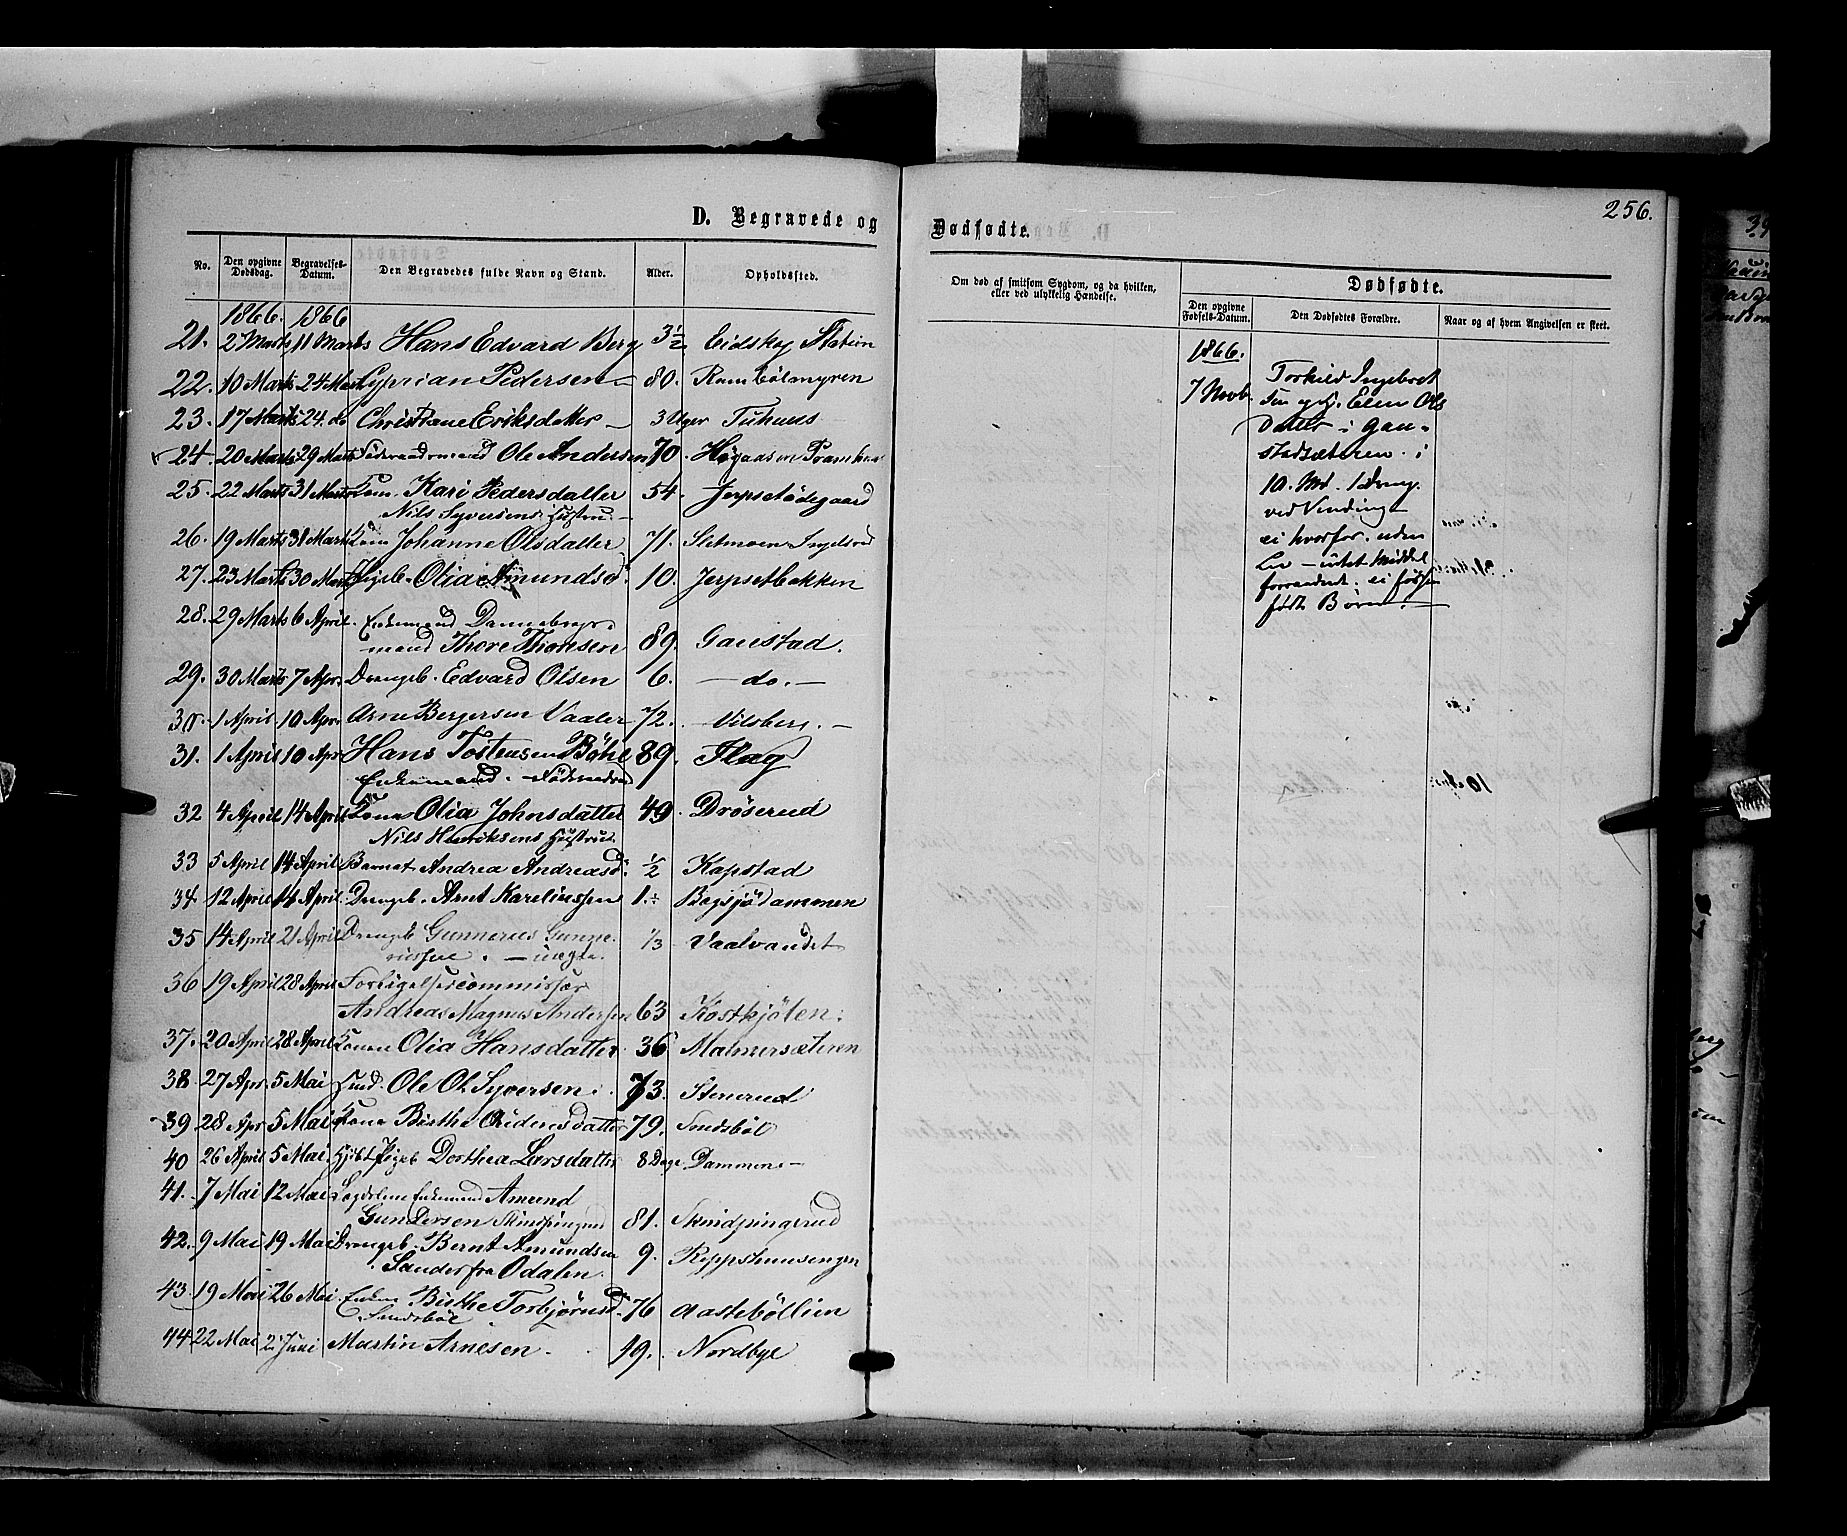 D. Begravede og
Dødfødte.
256.
No. Den opgivne Dødsdag. Begravelses-Datum. Den Begravedes fulde Navn og Stand. Alder. Opholdssted.
Om død af smitsom Sygdom, og da hvilken, eller ved ulykkelig Hændelse.
Dødfødte.
Den opgivne Fødsels-Datum. Den Dødfødtes Forældre. Naar og af hvem Angivelsen er skeet.
1866. 1866
21. 2 Marts 11 Marts Hans Edvard Berg 3½ Eidskog Station
22. 10 Marts 24 Marts Cyprian Pedersen 80.
23. 17 Marts 24. do Christiane Eriksdatter 3 Uger
24. 20 Marts 29 Marts Føderaadsmand Ole Andersen 70.
25. 22 Marts 31 Marts Kone. Kari Pedersdatter 54. Jerpsetødegaard
Nils Syversens Hustru
26. 19 Marts 31 Marts Johanne Olsdatter 71.
27. 23 Marts 30 Marts Pigeb. Olia Amundsd. 10. Jerpsetbakken
28. 29 Marts 6 April. Enkemand Dannebrogs-
mand Thore Thoresen 89. Gaustad.
29. 30 Marts 7 Apr. Drengeb. Edvard Olsen 6. — do. —
30. 1 April 10 Apr. Arne Bergersen Vaaler 72. Vilsberg. —
31. 1 April 10 Apr Hans Tostensen Bøhl 89.
Enkemand.
32 4 April 14 April Kone Olia Johnsdatter 49. Drøserud
Nils Henriksens Hustru
33 5 April 14 April Barnet Andrea Andreasd. ½ Kapstad
34. 12 April 14 April. Drengeb. Arnt Karelinssen 1. Bogsjødammen
35 14 April 21 April Drengeb Gunnerius Gunne-
riussen. — uægte. ⅓ Vaalvandet
36 19 April 28 April Forligelsescommissær
Andreas Magnus Andersen 63 Kostkjølen.
37. 20 April 28 April Konen Olia Hansdatter. 36 Malmersæteren
38 27 Apr. 5 Mai Ole Ol. Syversen. 73. Stenerud
39 28 Apr 5 Mai Kone Birthe 79. Sundsbøl
40 26 April 5 Mai. Pigeb Dorthea Larsdatter 8 Dage Dammene —
41. 7 Mai 12 Mai Enkemand Amund
Gundersen 81. Skindpingrud
42. 9 Mai 19 Mai Drengeb. Bernt Amundsen 9.
Sander fra Odalen.
43. 19 Mai 26 Mai Enken Birthe Torbjørnsd. 76
44 22 Mai 2 Juni Martin Arnesen. 19. Nordbye
1866.
7 Novb. Torkild Ingebret
Sen og h. Elen Ols
Datter i Gau-
stadsæteren. i
10. Md. 1 Dreng.
ved Vending
ei hvorfor. uden
Liv — intet Middel
forsømt. ei før
født Børn. —